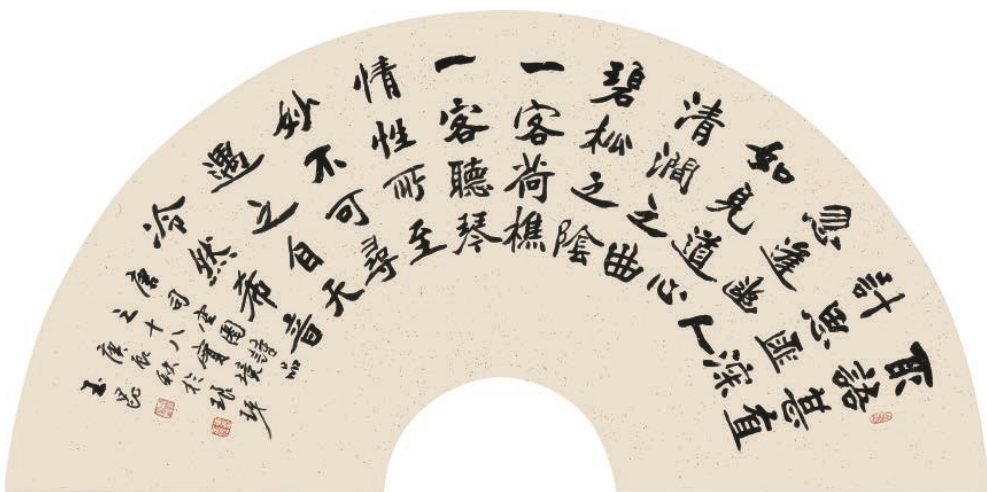 取語甚直
計思匪深
忽逢幽人
如見道心
清澗之曲
碧松之陰
一客荷樵
一客聽琴
情性所至
妙不可尋
遇之自天
冷然希音
唐司空圖詩品
之十八實境
庚辰秋於琅玡
玉